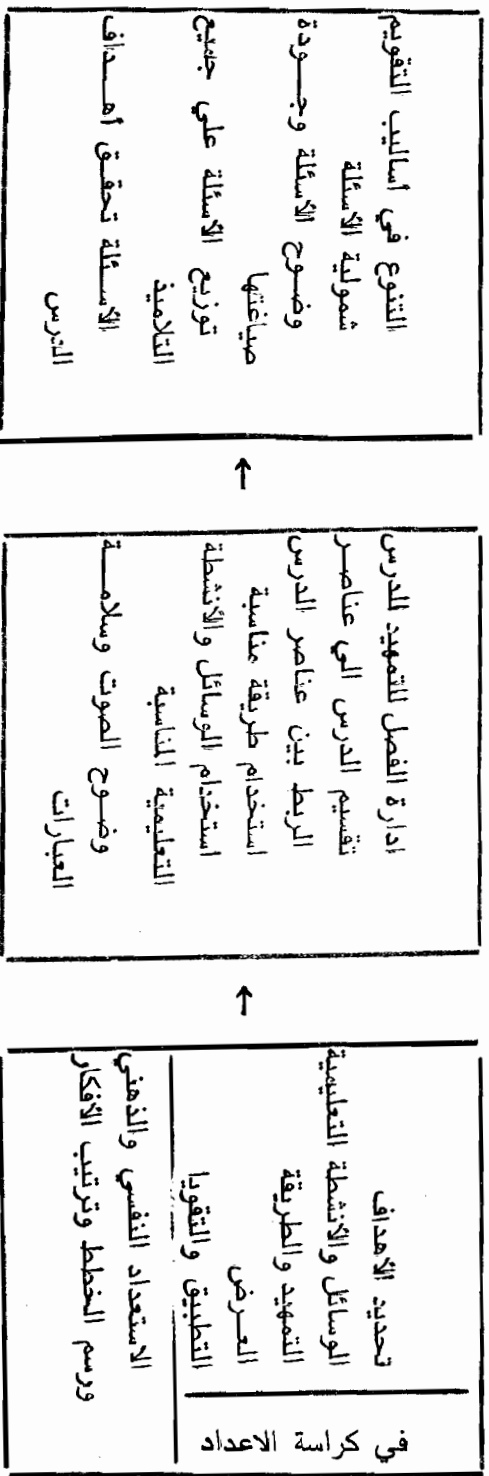 في كراسة الاعداد
تحديد الأهداف
الوسائل والأنشطة التعليمية
التمهيد والطريقة
العرض
التطبيق والتقويا
الاستعداد النفسي والذهني
ورسم الخطط وترتيب الأفكار
ادارة الفصل للتمهيد للدرس
تقسيم الدرس الي عناصر
الربط بين عناصر الدرس
استخدام طريقة مناسبة
استخدام الوسائل والأنشطة
التعليمية المناسبة
وضوح الصوت وسلامة
العبارات
التنوع في أساليب التقويم
شمولية الأسئلة
وضوح الأسئلة وجودة
صياغتها
توزيع الأسئلة علي جميع
التلاميذ
الأسئلة تحقق أهداف
الدرس